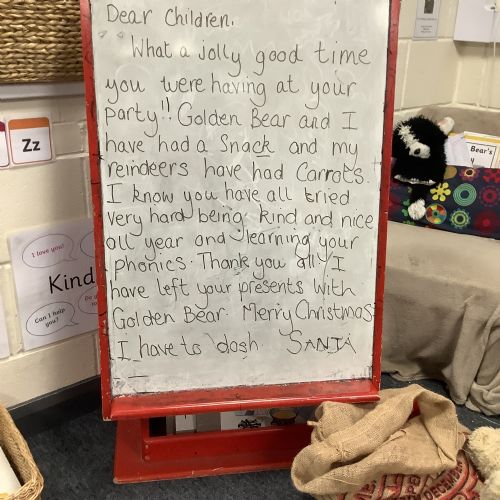 Dear Children.
What a jolly good time
you were having at your
party!! Golden Bear and I
have had a Snack and my
reindeers have had Carrots.
I know you have all tried
very hard being kind and nice
all year and learning your
phonics. Thank you all! I
have left your presents with
Golden Bear. Merry Christmas
I have to dosh. SANTA
Zz
I love you!
Kind
Can I help
you?
Bear's
DECEMBER